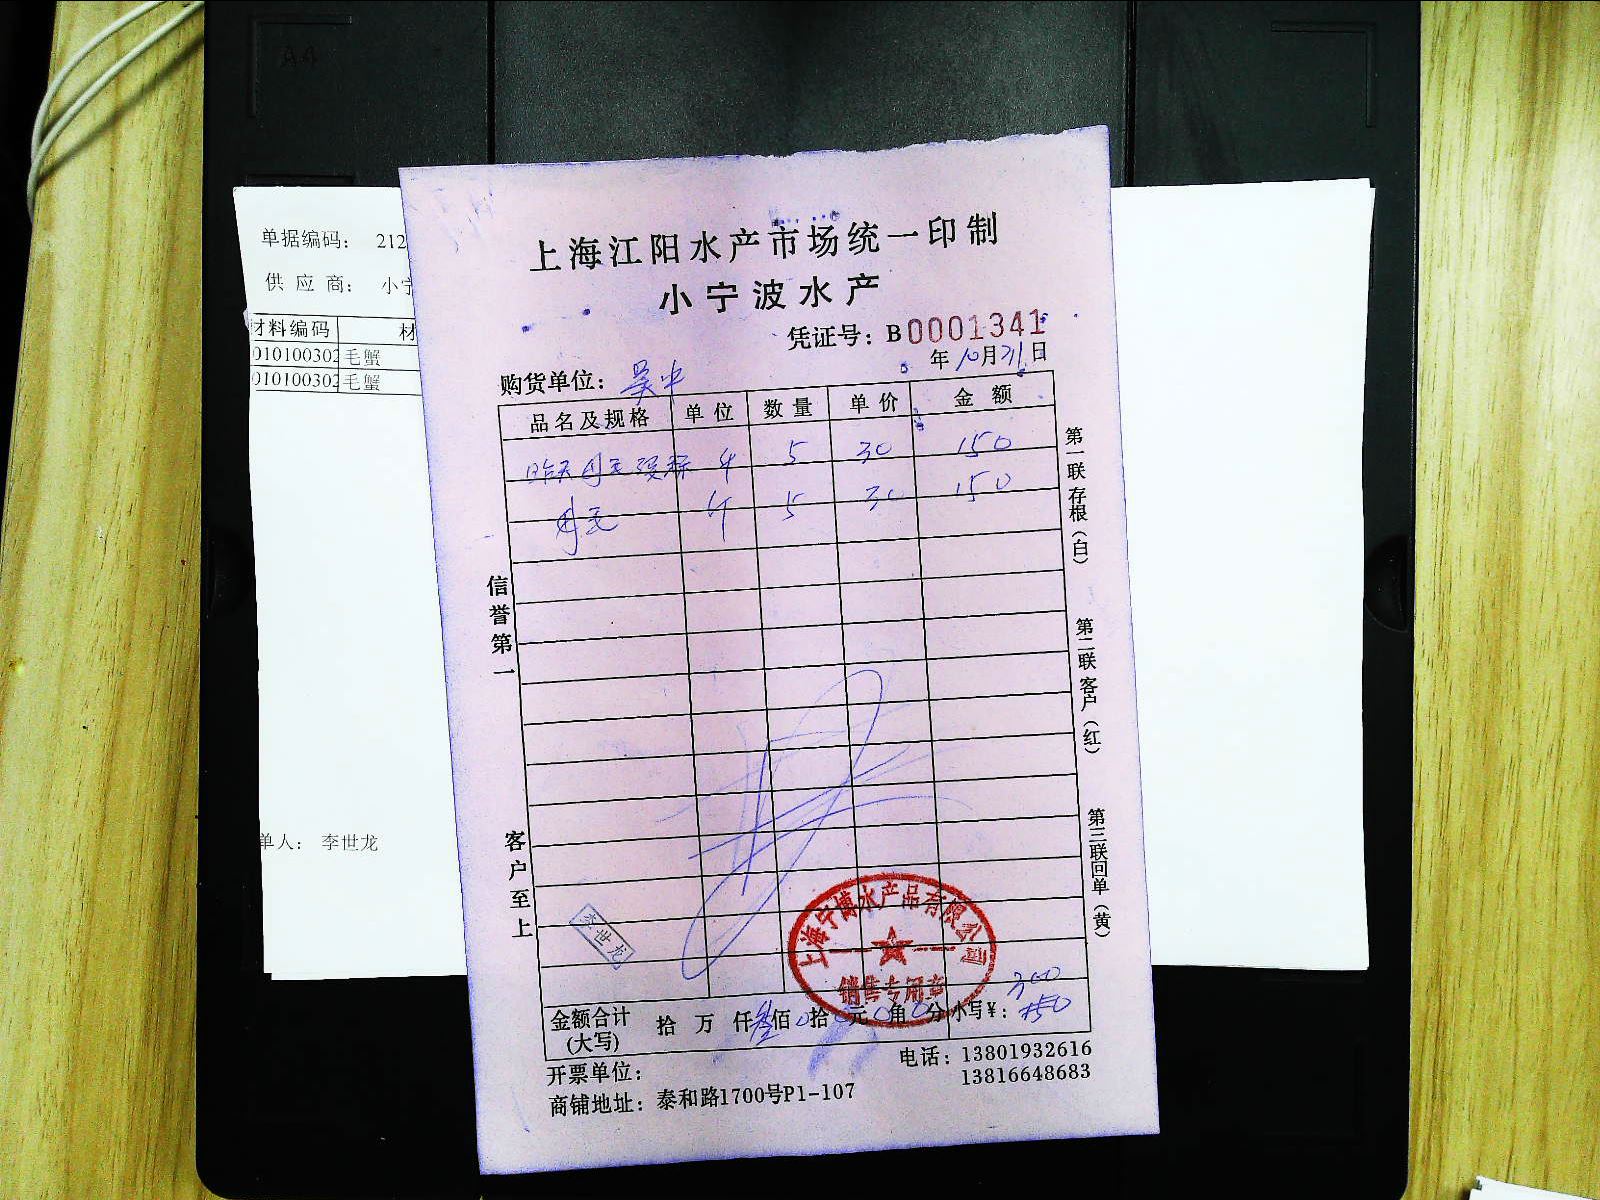 A4
单据编码： 212
供 应 商： 小宁
材料编码 材
010100302 毛蟹
010100302 毛蟹
单人： 李世龙
上海江阳水产市场统一印制
小宁波水产
凭证号：B0001341
年10月21日
购货单位：吴中
品名及规格 单位 数量 单价 金额
昨天 斤 5 30 150
斤 5 30 150
信誉第一
客户至上
第一联存根（白）
第二联客户（红）
第三联回单（黄）
李世龙
上海宁博水产品有限公司
销售专用章
300
金额合计(大写) 拾 万 仟叁佰0拾0元0角0分 小写¥：150
开票单位：
电话：13801932616
13816648683
商铺地址：泰和路1700号P1-107